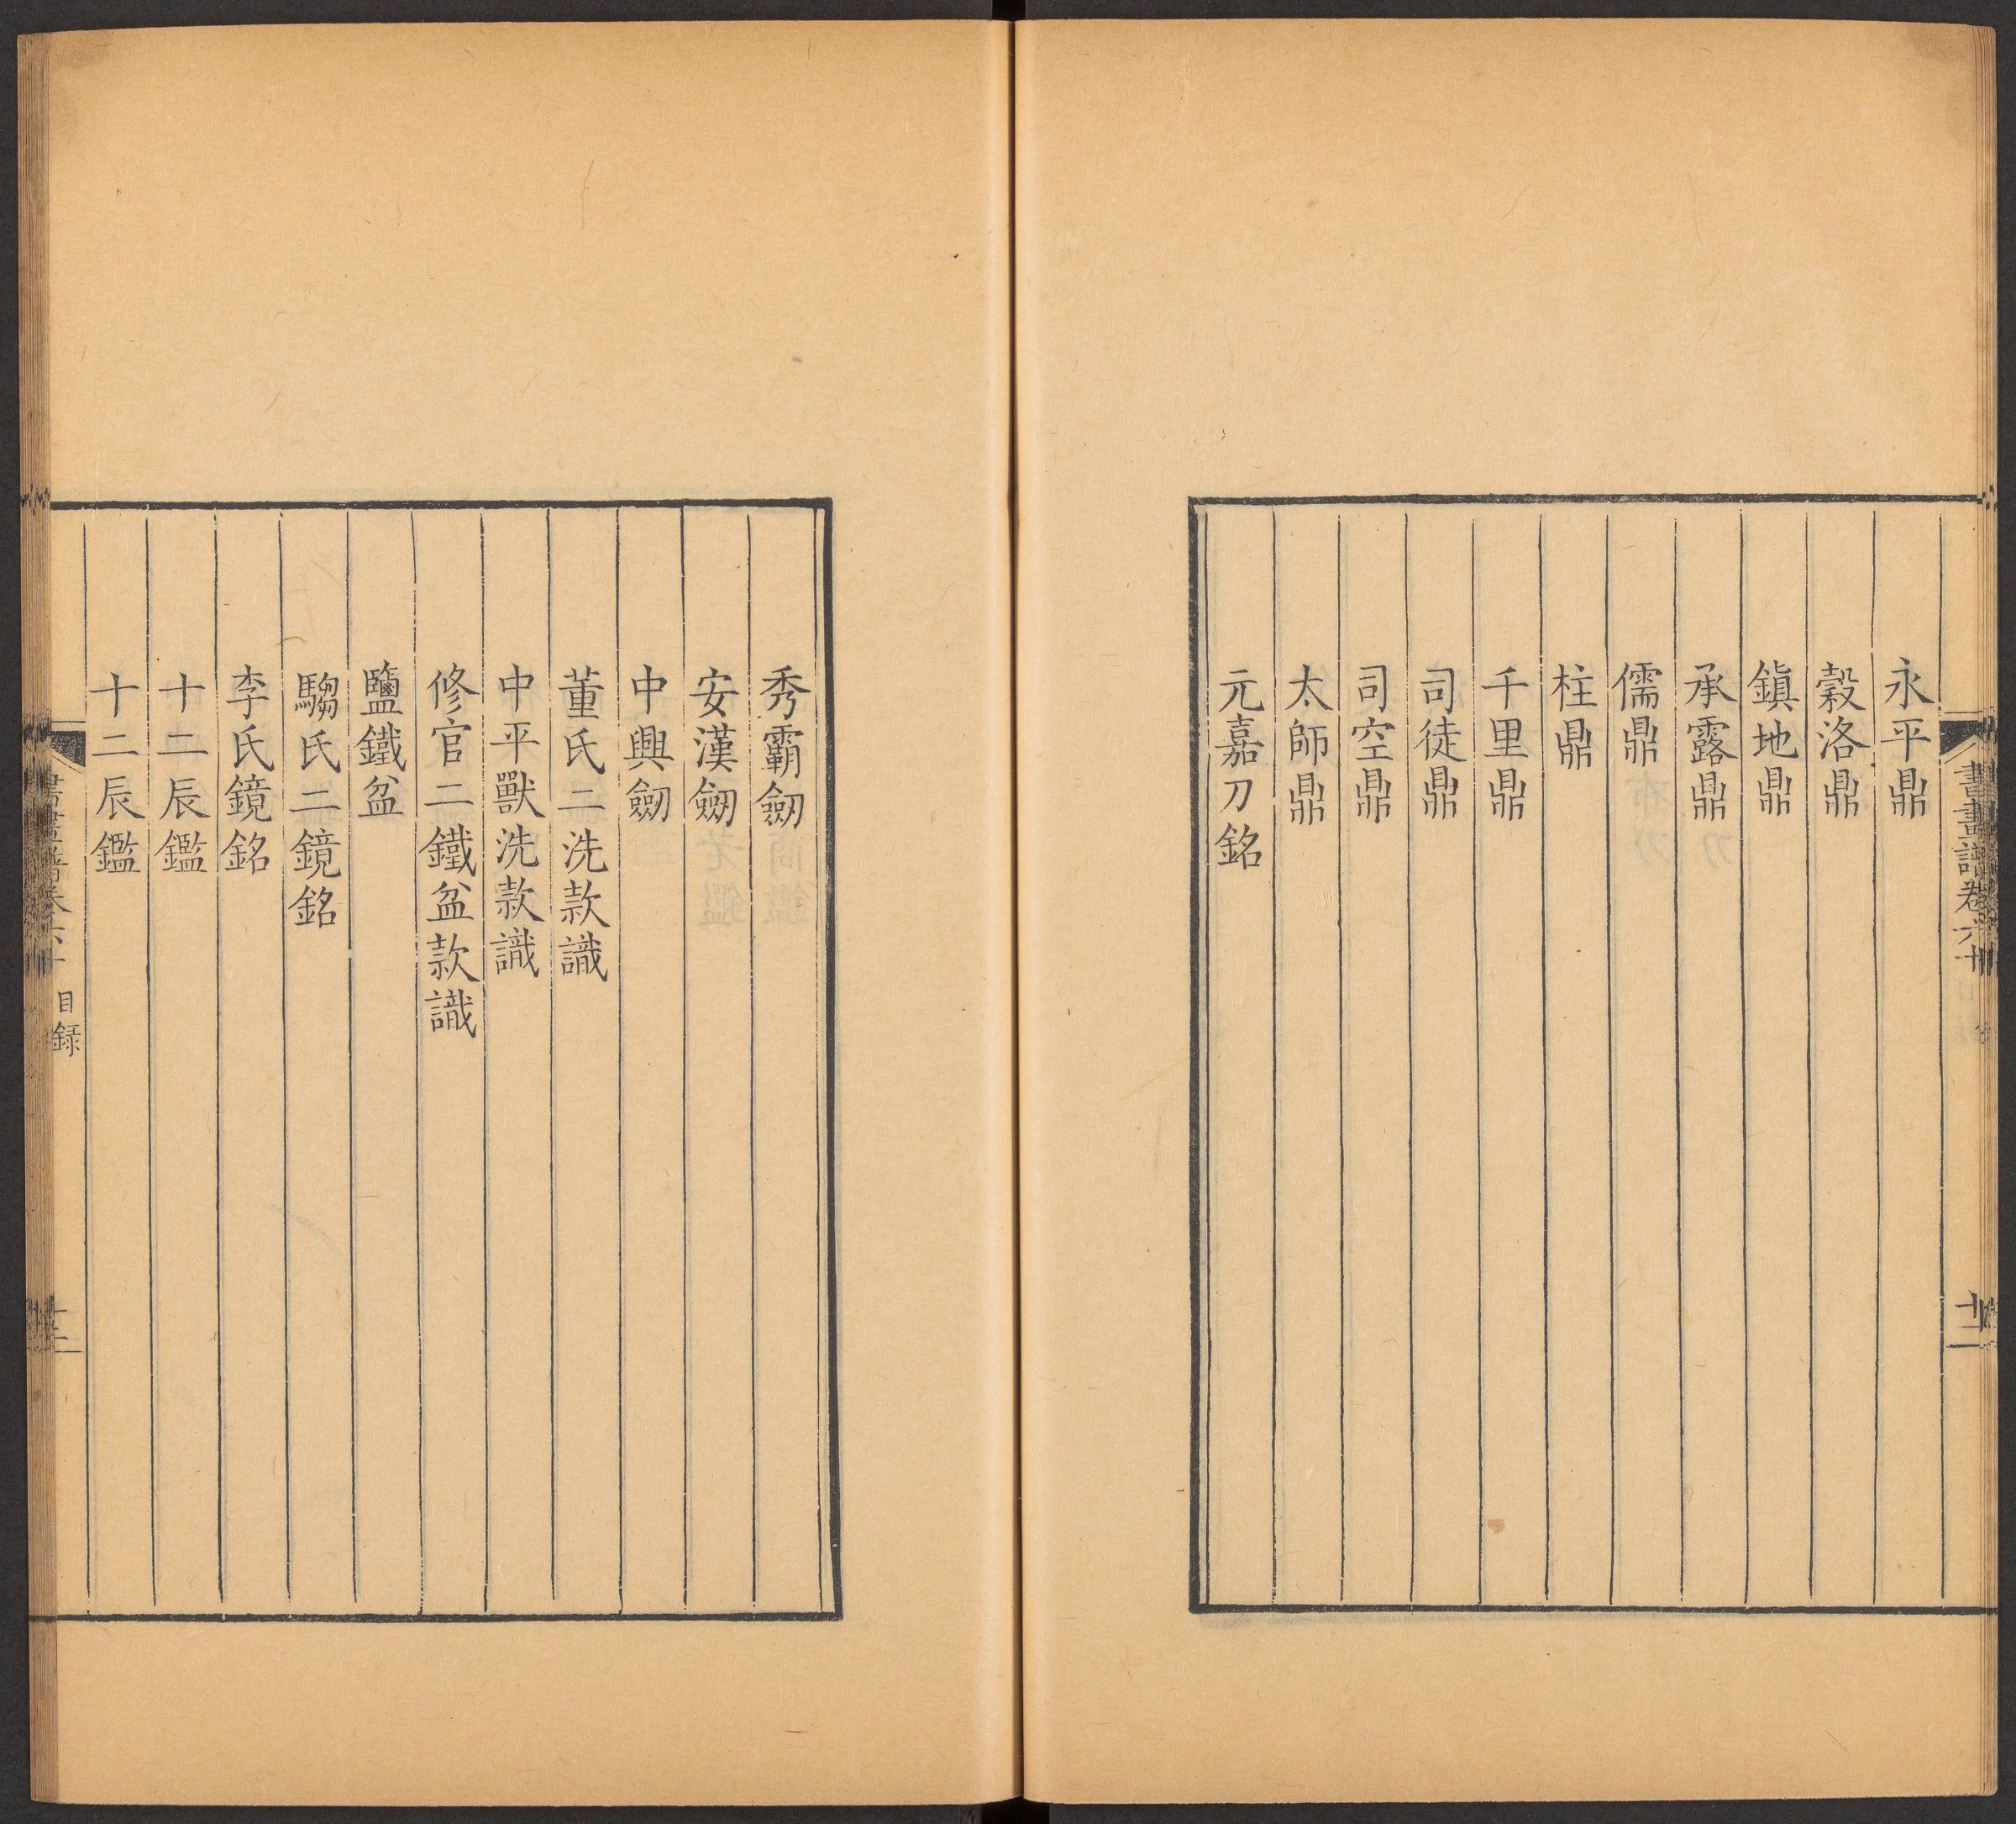 永平鼎
穀洛鼎
鎮地鼎
承露鼎
儒鼎
柱鼎
千里鼎
司徒鼎
司空鼎
太師鼎
元嘉刀銘
秀霸劒
安漢劒
中興劒
董氏二洗款識
中平獸洗款識
修官二鐵盆款識
鹽鐵盆
騶氏二鏡銘
李氏鏡銘
十二辰鑑
十二辰鑑
書畫譜卷六十
目錄